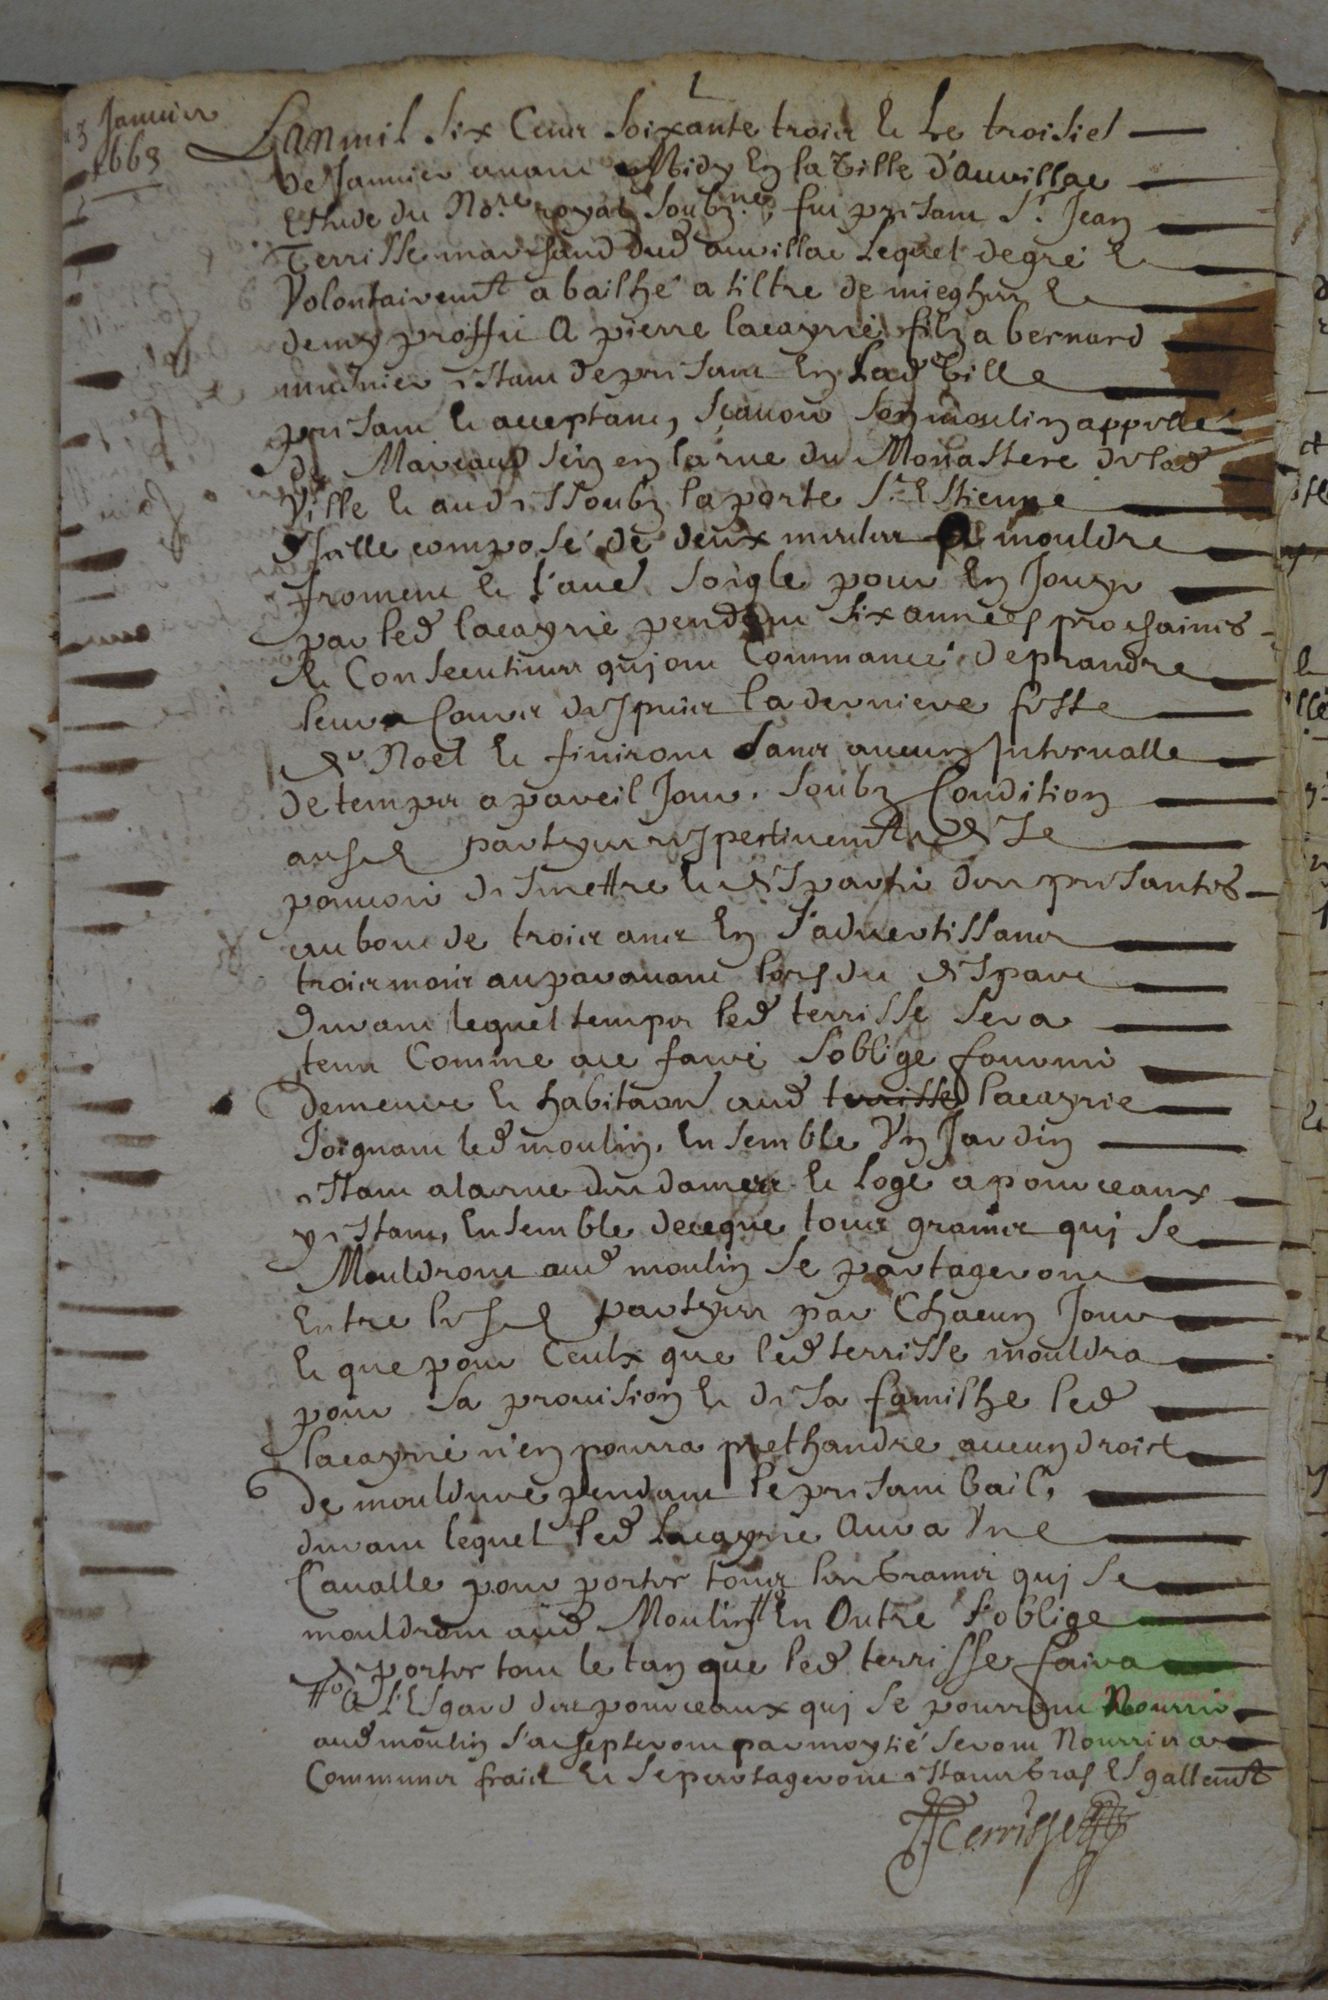 1
3 Januier
1663
Lanmil six Cens soixante trois & Le troisies
de Januier auant Midy En la Ville d'auvillar
Esthude du Nore. royal soubzne. fut present Sr. Jean
Terrisse marchand dud auvillar Lequel de gré &
Volontairemt a bailhé a tiltre de mieghes &
demy proffit A pierre lacayrie filz a bernard
musnier estant de present En Lad Ville
present & acceptant, scauoir son moulin appellé
de Marcaud sis en la rue du Monastere de lad
Ville & au dessoubz la porte St Estienne
Icelle composé de deux meules A mouldre
froment & l'autre soigle pour En Jouyr
par led lacayrie pendant six années prochaines
& Consecutiues qui ont Commancé de prandre
leur Cours despuis la derniere feste
de Noel & finiront sans aucun Interualle
de temps a pareil Jour. soubz Condition
ausd partyes respectiuemt de se
pouuoir desmettre & despartir des presantes
au bout de trois ans En s'aduertissant
trois mois auparauant lors du despart
Durant lequel temps led terrisse sera
tenu Comme ace faire s'oblige fournir
demeure & habitaon aud terrisse lacayrie
Joignant led moulin. Ensemble Vn Jardin
estant a la rue des dames & loge a pourceaux
y estant, Ensemble de ce que tous grains qui se
Mouldront aud moulin se partageront
Entre lesd partyes par Chacun Jour
& que pour Ceulx que led terrisse mouldra
pour sa prouision & de sa familhe led
lacayrie n'en pourra prethandre aucun droict
de mouldure pendant le presant bail,
durant lequel led Lacayrie aura Vne
Caualle pour porter tous les Grains qui se
mouldront aud Moulin # En Outre s'oblige
de porter tout le tan que led terrisse faira
# a l'Esgard des pourceaux qui se pourront Nourrir
aud moulin s'achepteront par moytié seront Nourris a
Communs frais & se partageront estants Gras Esgallemt
Terrisse